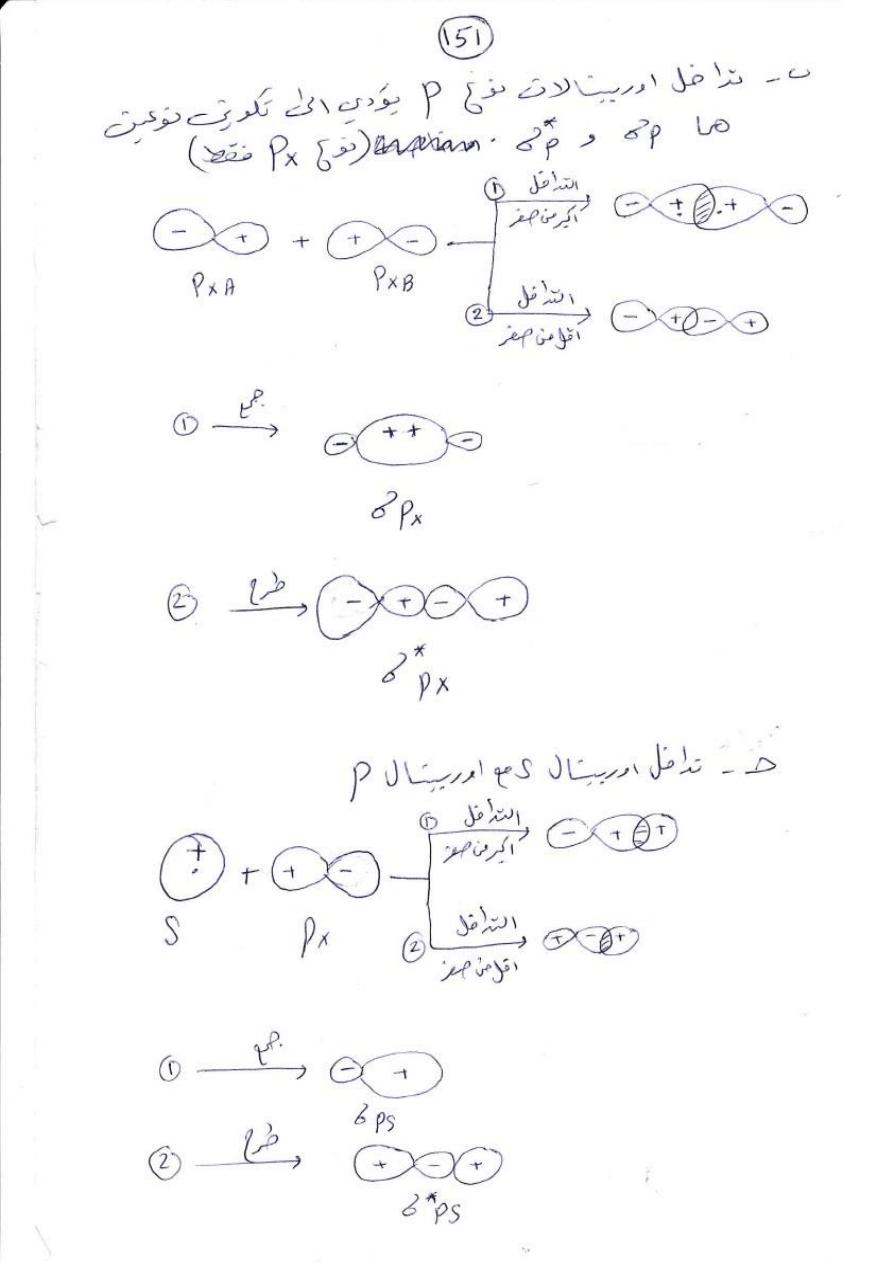 151
ب - تداخل اوربيتالات نوع P يؤدي الى تكوين نوعين
هما σp و σ*p . (نوع Px فقط)
① التداخل
اكبر من صفر
- + + + -
- + + + -
PxA PxB
② التداخل
اقل من صفر
- + - +
① جمع
- + + -
σPx
② طرح
- + - +
σ*px
حـ - تداخل اوربيتال s مع اوربيتال P
① التداخل
اكبر من صفر
- + +
+ + + -
S Px
② التداخل
اقل من صفر
+ - +
① جمع
- +
σps
② طرح
+ - +
σ*ps